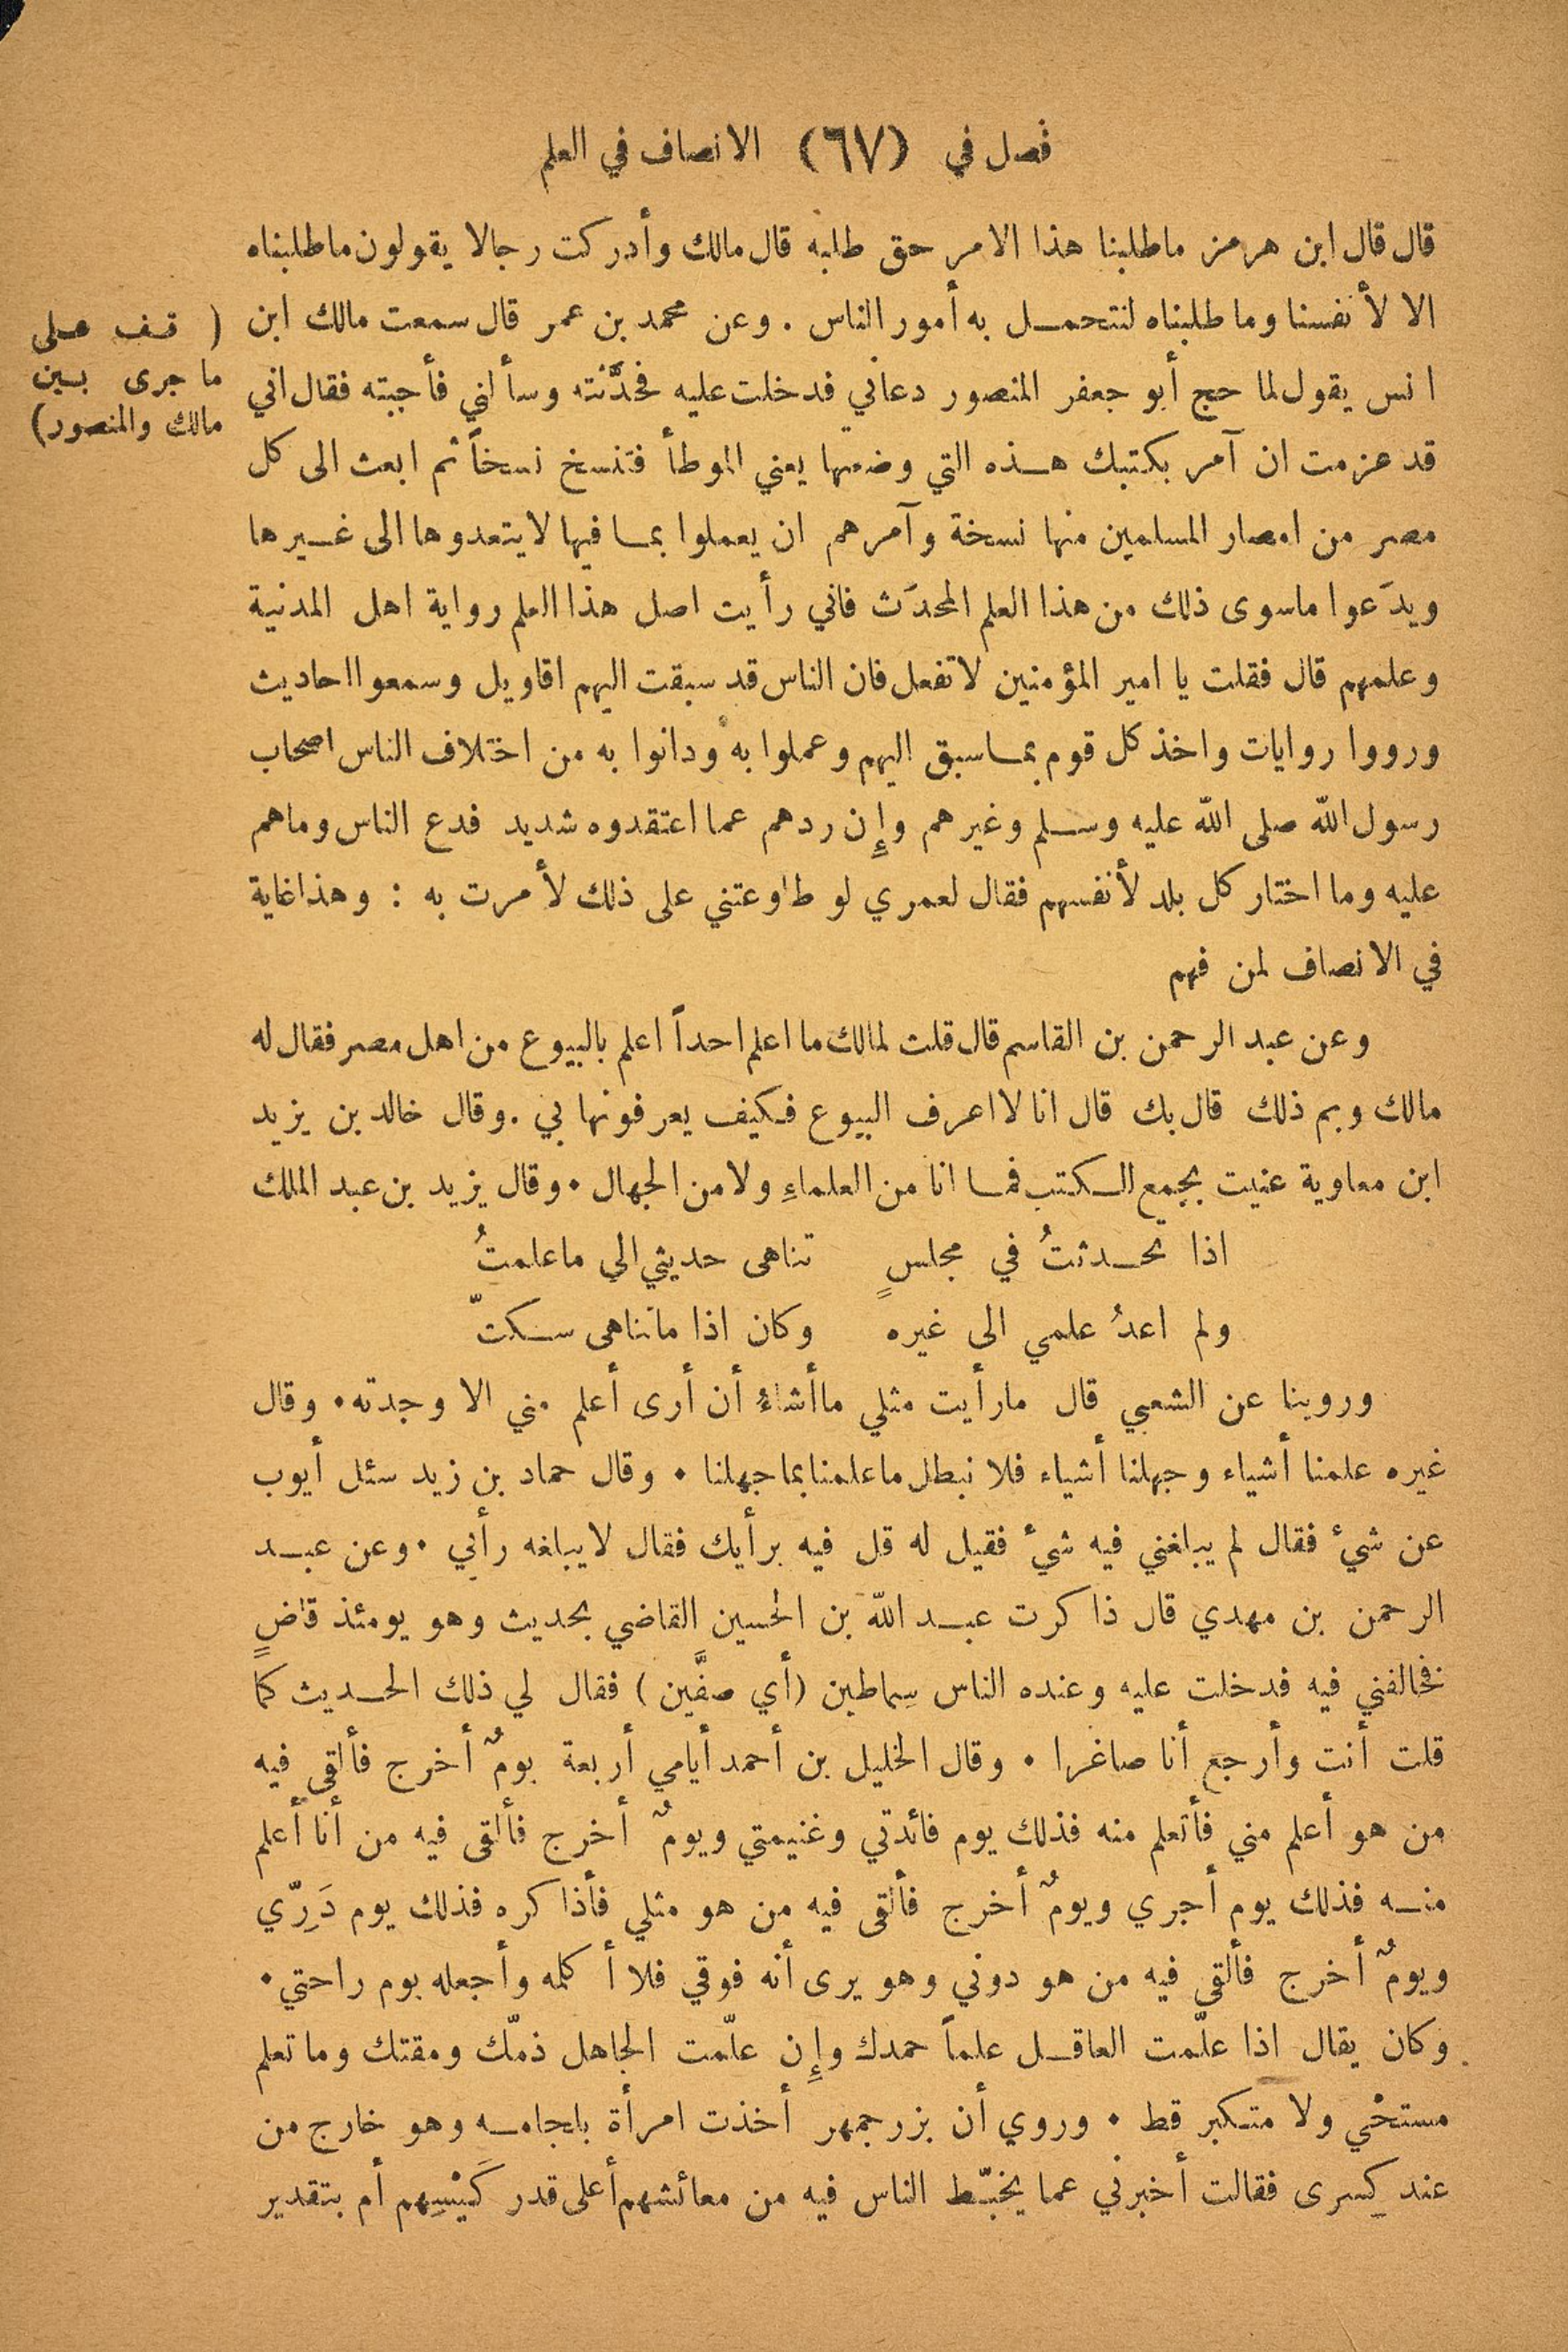 فصل في (٦٧) الانصاف في العلم
قال قال ابن هرمز ماطلبنا هذا الامر حق طلبه قال مالك وأدركت رجالا يقولون ماطلبناه
الا لأنفسنا وما طلبناه لنتحمل به أمور الناس . وعن محمد بن عمر قال سمعت مالك ابن
( قف على
ما جرى بين
مالك والمنصور)
انس يقول لما حج أبو جعفر المنصور دعاني فدخلت عليه فحدَّثته وسألني فأجبته فقال اني
قد عزمت ان آمر بكتبك هذه التي وضعتها يعني الموطأ فتنسخ نسخاً ثم ابعث الى كل
مصر من امصار المسلمين منها نسخة وآمرهم ان يعملوا بما فيها لايتعدوها الى غيرها
ويدَعوا ماسوى ذلك من هذا العلم المحدَث فاني رأيت اصل هذا العلم رواية اهل المدنية
وعلمهم قال فقلت يا امير المؤمنين لاتفعل فان الناس قد سبقت اليهم اقاويل وسمعوا احاديث
ورووا روايات واخذ كل قوم بما سبق اليهم وعملوا به ودانوا به من اختلاف الناس اصحاب
رسول الله صلى الله عليه وسلم وغيرهم وإِن ردهم عما اعتقدوه شديد فدع الناس وماهم
عليه وما اختار كل بلد لأنفسهم فقال لعمري لو طاوعتني على ذلك لأمرت به : وهذا غاية
في الانصاف لمن فهم
وعن عبد الرحمن بن القاسم قال قلت لمالك ما اعلم احداً اعلم بالبيوع من اهل مصر فقال له
مالك وبم ذلك قال بك قال انا لا اعرف البيوع فكيف يعرفونها بي . وقال خالد بن يزيد
ابن معاوية عنيت بجمع الكتب فما انا من العلماءِ ولا من الجهال . وقال يزيد بن عبد الملك
اذا تحدثتُ في مجلسٍ تناهى حديثي الى ماعلمتُ
ولم اعدُ علمي الى غيره وكان اذا ماتناهى سكتّ
وروينا عن الشعبي قال مارأيت مثلي ماأشاءُ أن أرى أعلم مني الا وجدته . وقال
غيره علمنا أشياء وجهلنا أشياء فلا نبطل ماعلمنا بما جهلنا . وقال حماد بن زيد سئل أيوب
عن شيء فقال لم يبلغني فيه شيء فقيل له قل فيه برأيك فقال لايبلغه رأبي . وعن عبد
الرحمن بن مهدي قال ذاكرت عبد الله بن الحسين القاضي بحديث وهو يومئذ قاضٍ
فخالفني فيه فدخلت عليه وعنده الناس سِماطين (أي صفَّين) فقال لي ذلك الحديث كما
قلت أنت وأرجع أنا صاغرا . وقال الخليل بن أحمد أيامي أربعة يومٌ أخرج فألقى فيه
من هو أعلم مني فأتعلم منه فذلك يوم فائدتي وغنيمتي ويومٌ أخرج فألقى فيه من أنا أعلم
منه فذلك يوم أجري ويومٌ أخرج فألقى فيه من هو مثلي فأذاكره فذلك يوم دَرِّي
ويومٌ أخرج فألقى فيه من هو دوني وهو يرى أنه فوقي فلا أكلمه وأجعله يوم راحتي .
وكان يقال اذا علّمت العاقل علماً حمدك وإِن علّمت الجاهل ذمّك ومقتك وما تعلم
مستحْي ولا متكبر قط . وروي أن بزرجمهر أخذت امرأة بلجامه وهو خارج من
عند كِسرى فقالت أخبرني عما يخبّط الناس فيه من معائشهم أعلى قدر كَيْسِهم أم بتقدير